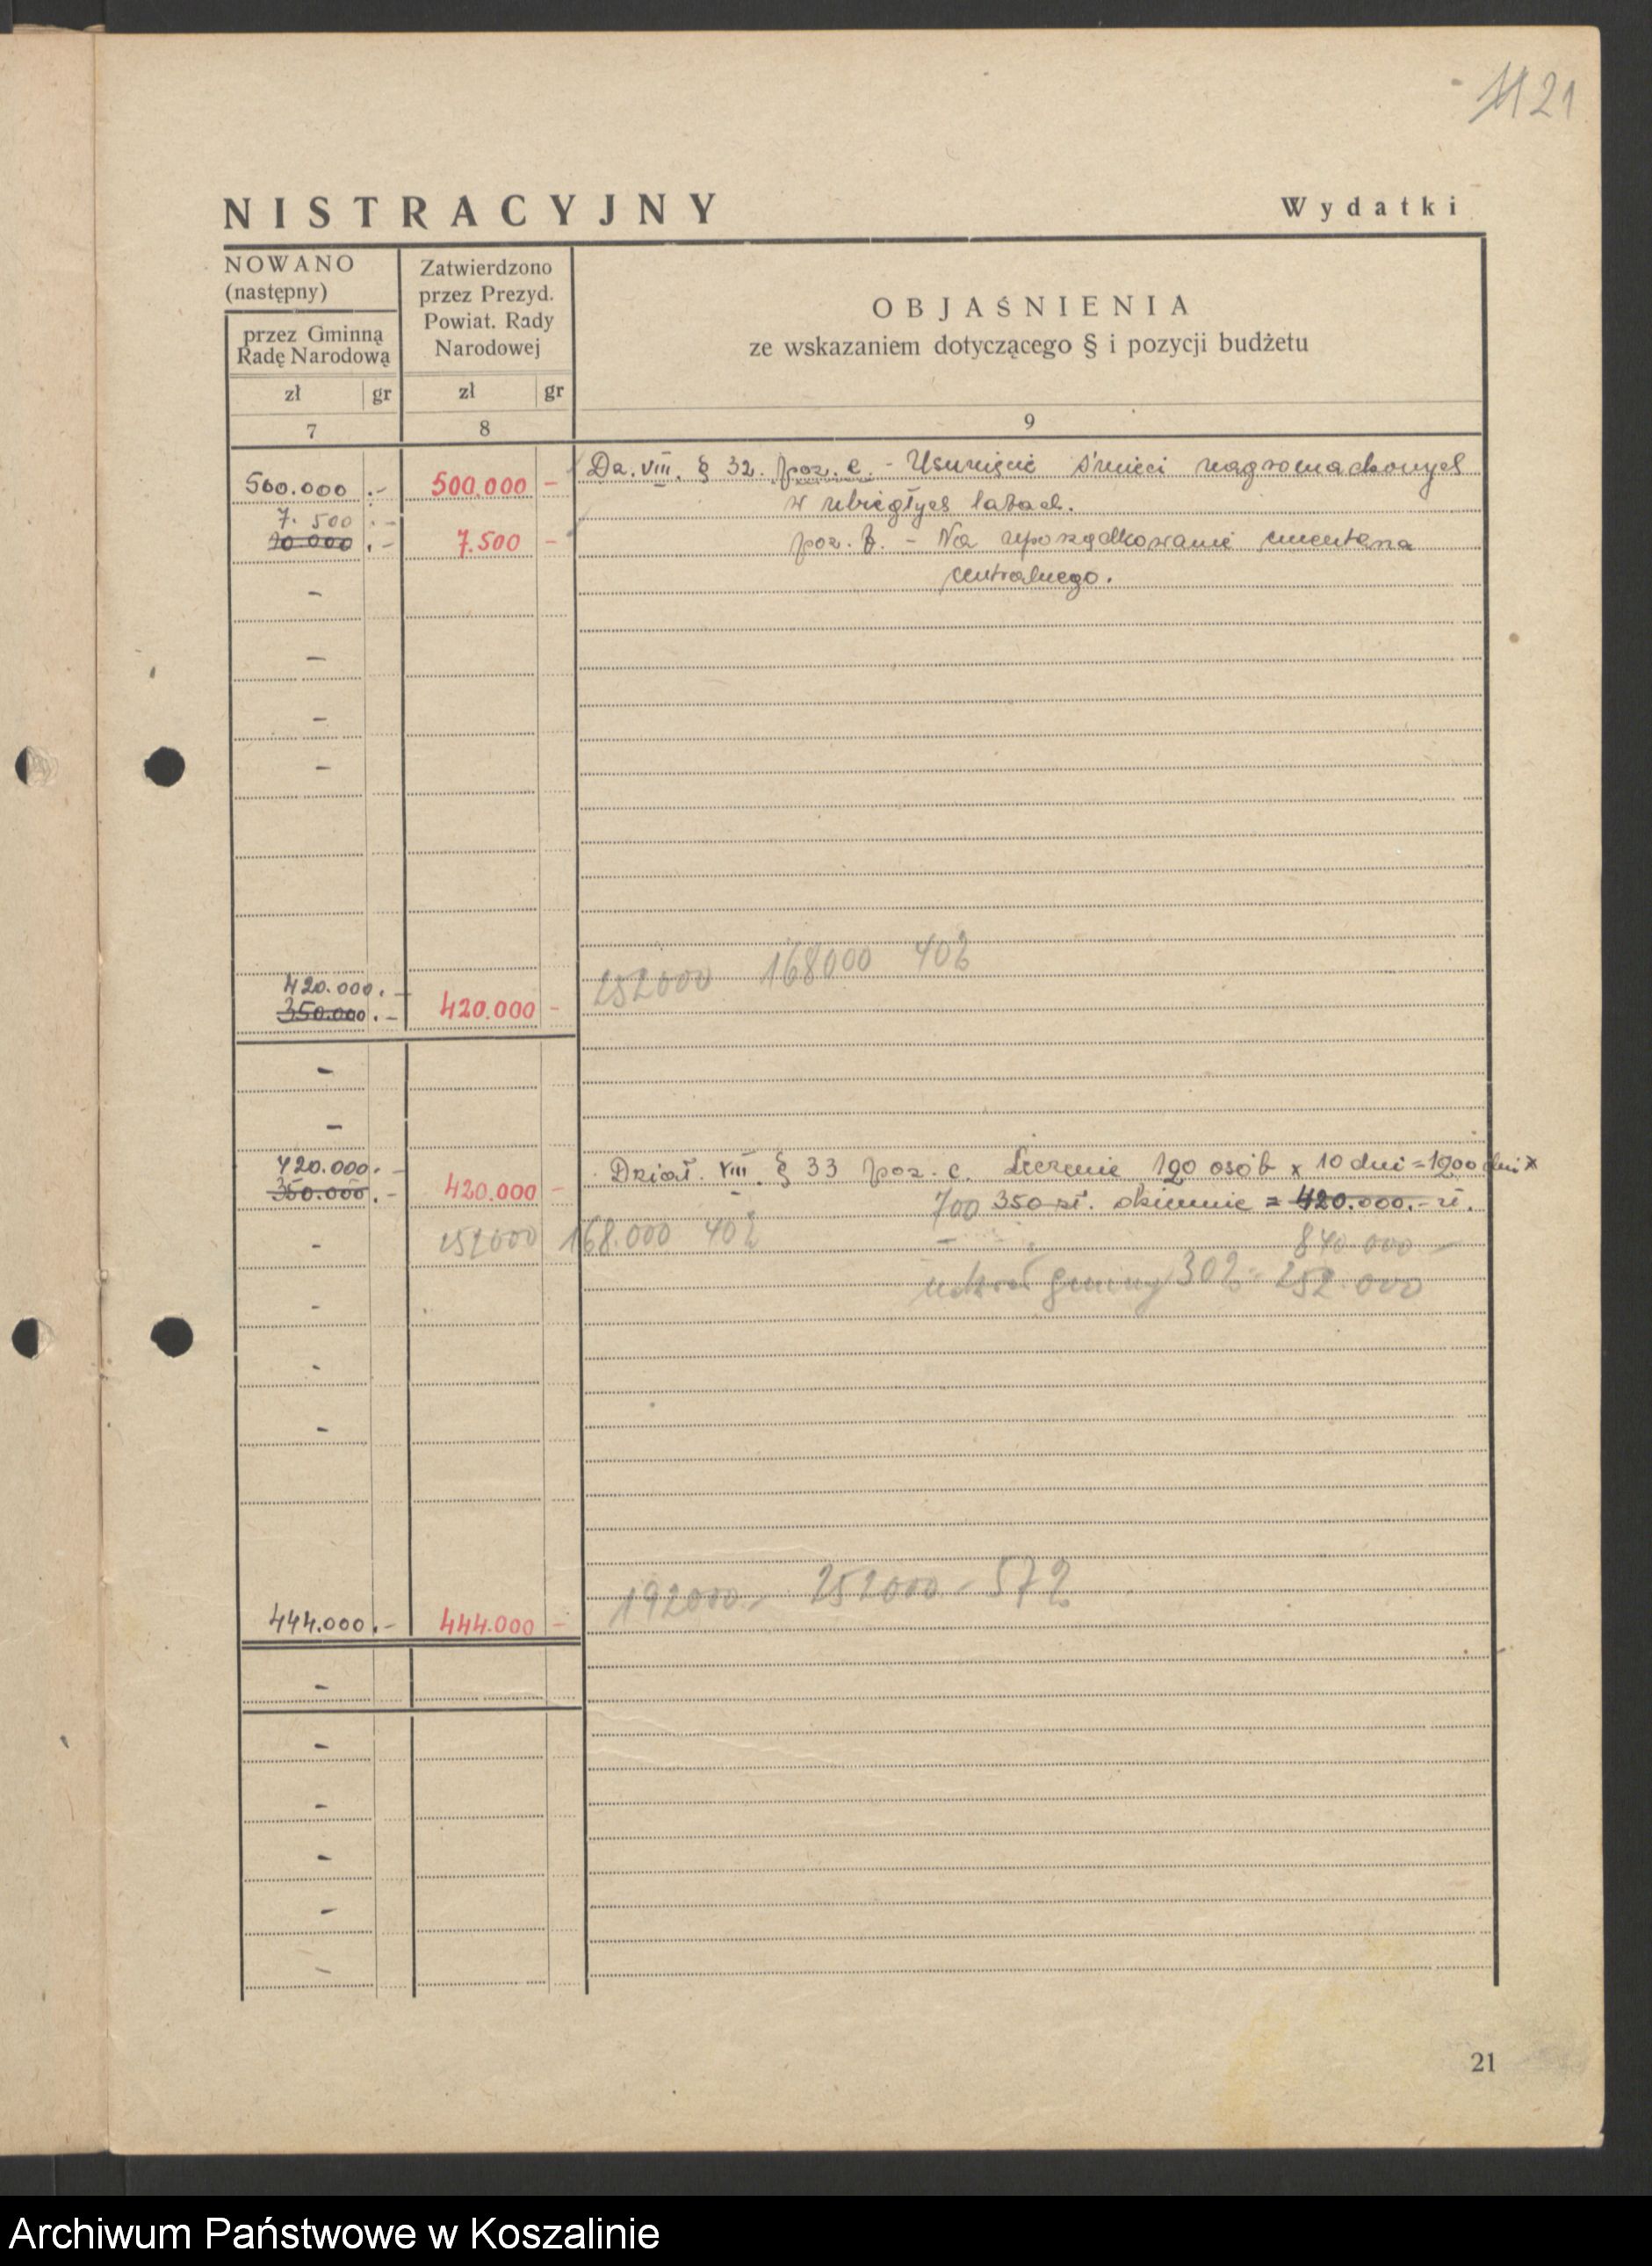 21
NISTRACYJNY
Wydatki
NOWANO
(następny)
przez Gminną
Radę Narodową
Zatwierdzono
przez Prezyd.
Powiat. Rady
Narodowej
OBJAŚNIENIA
ze wskazaniem dotyczącego § i pozycji budżetu
zł gr zł gr
7 8 9
500.000 .- 500.000 - Dz. VIII. § 32. poz. e. - Usunięcie śmieci nagromadzonych
w ubiegłych latach.
7.500 .-
10.000 .- 7.500 - poz. f. - Na uporządkowanie cmentarza
centralnego.
-
-
-
-
252000 168000 40%
420.000.-
350.000.- 420.000 -
-
-
420.000.- Dział. VIII. § 33 poz. c. Leczenie 120 osób x 10 dni = 1200 dni x
350.000.- 420.000 - 700 350 zł. dziennie = 420.000.- zł.
- 252000 168.000 40% 840.000 -
udział gminy 30% = 252.000
-
-
-
192000.- 252000 - 57%
444.000.- 444.000 -
-
-
-
-
-
-
21
Archiwum Państwowe w Koszalinie